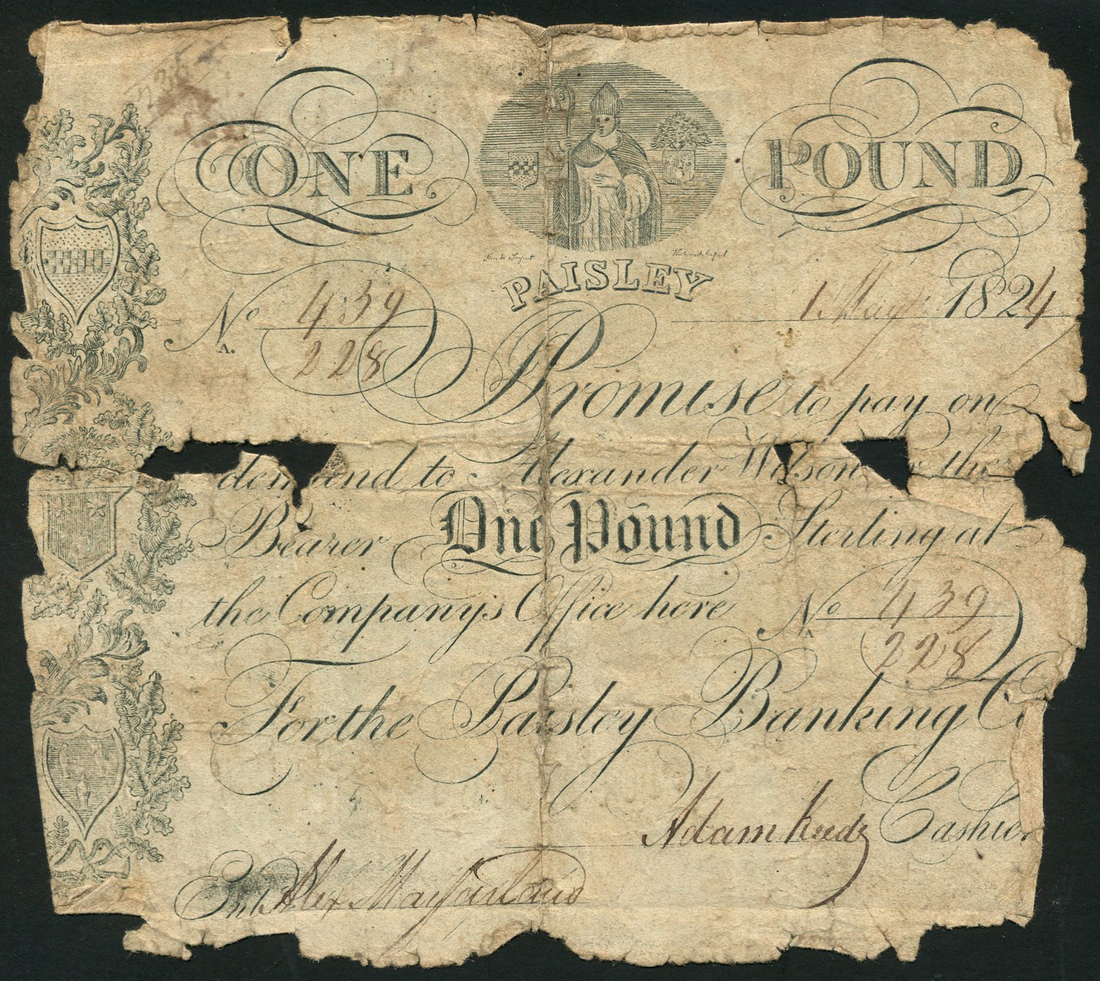 ONE POUND
PAISLEY
No 439
A. 228
1 May 1824
Promise to pay on
demand to Alexander Wilson or the
Bearer One Pound Sterling at
the Company's Office here
No 439
A 228
For the Paisley Banking Co
Adam Keir Cashier
Entd. Alex